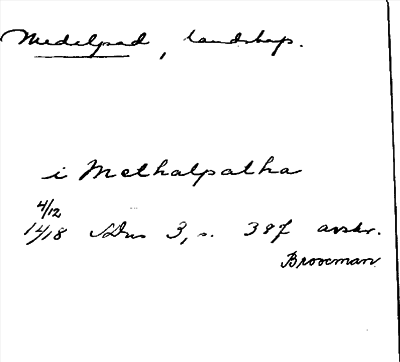 Medelpad, landskap.
i Methalpatha
4/12
1418 SDns 3, s. 38f avskr.
Brooceman